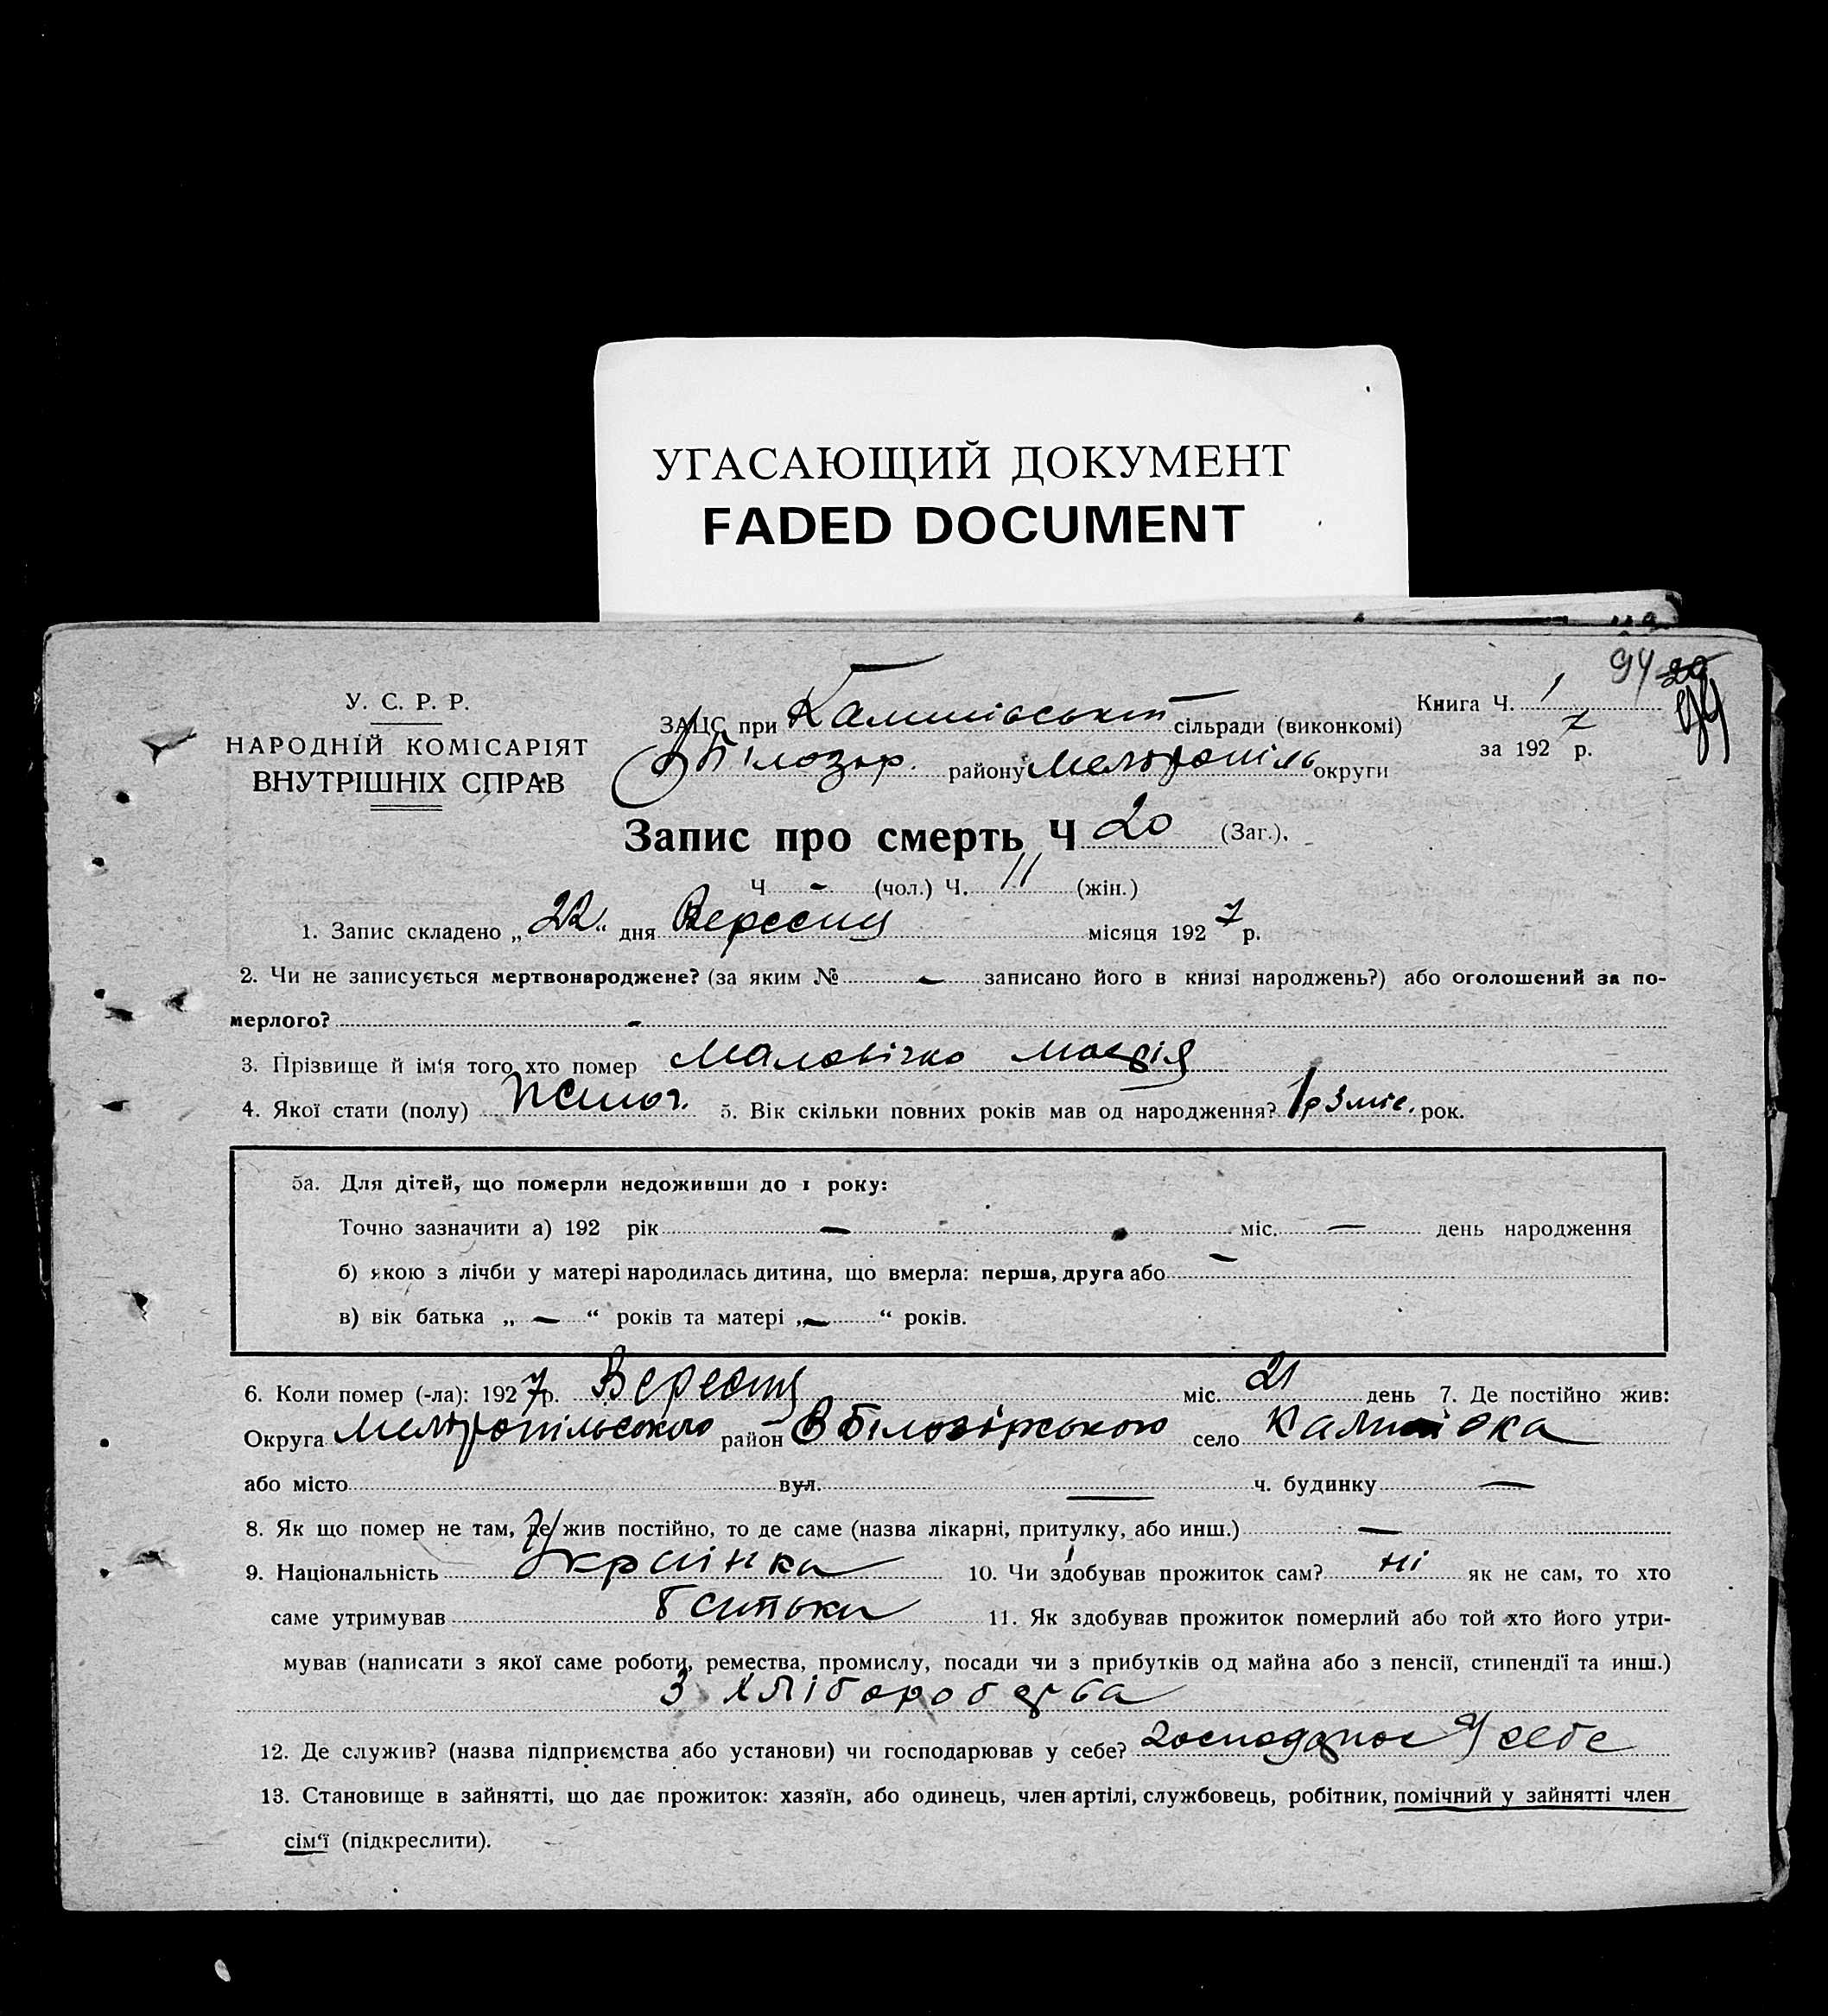 УГАСАЮЩИЙ ДОКУМЕНТ
FADED DOCUMENT
94 20
94
У. С. Р. Р.
НАРОДНІЙ КОМІСАРІЯТ
ВНУТРІШНІХ СПРАВ
ЗАЦС при сільради (виконкомі)
Білозір. району Меліτοпіль округи
Книга Ч. 1
за 1927 р.
Запис про смерть Ч 20 (Заг.).
Ч - (чол.) Ч. 11 (жін.)
1. Запис складено „22“ дня Вересня місяця 1927 р.
2. Чи не записується мертвонароджене? (за яким № - записано його в книзі народжень?) або оголошений за по-
мерлого? -
3. Прізвище й ім‘я того хто помер Маловічко Марія
4. Якої стати (полу) жіноч. 5. Вік скільки повних років мав од народження? 1 р 3 міс. рок.
5а. Для дітей, що померли недоживши до 1 року:
Точно зазначити а) 192 рік — міс. — день народження
б) якою з лічби у матері народилась дитина, що вмерла: перша, друга або —
в) вік батька „ — “ років та матері „ — “ років.
6. Коли помер (-ла): 1927 р. Вересня міс. 21 день 7. Де постійно жив:
Округа Мелітопільського район В Білозірського село Калинівка
або місто вул. — ч. будинку —
8. Як що помер не там, де жив постійно, то де саме (назва лікарні, притулку, або инш.) —
9. Національність Українка 10. Чи здобував прожиток сам? ні як не сам, то хто
саме утримував батьки 11. Як здобував прожиток померлий або той хто його утри-
мував (написати з якої саме роботи, ремества, промислу, посади чи з прибутків од майна або з пенсії, стипендії та инш.)
З хліборобства
12. Де служив? (назва підприємства або установи) чи господарював у себе? у себе
13. Становище в зайнятті, що дає прожиток: хазяїн, або одинець, член артілі, службовець, робітник, помічний у зайнятті член
сім‘ї (підкреслити).